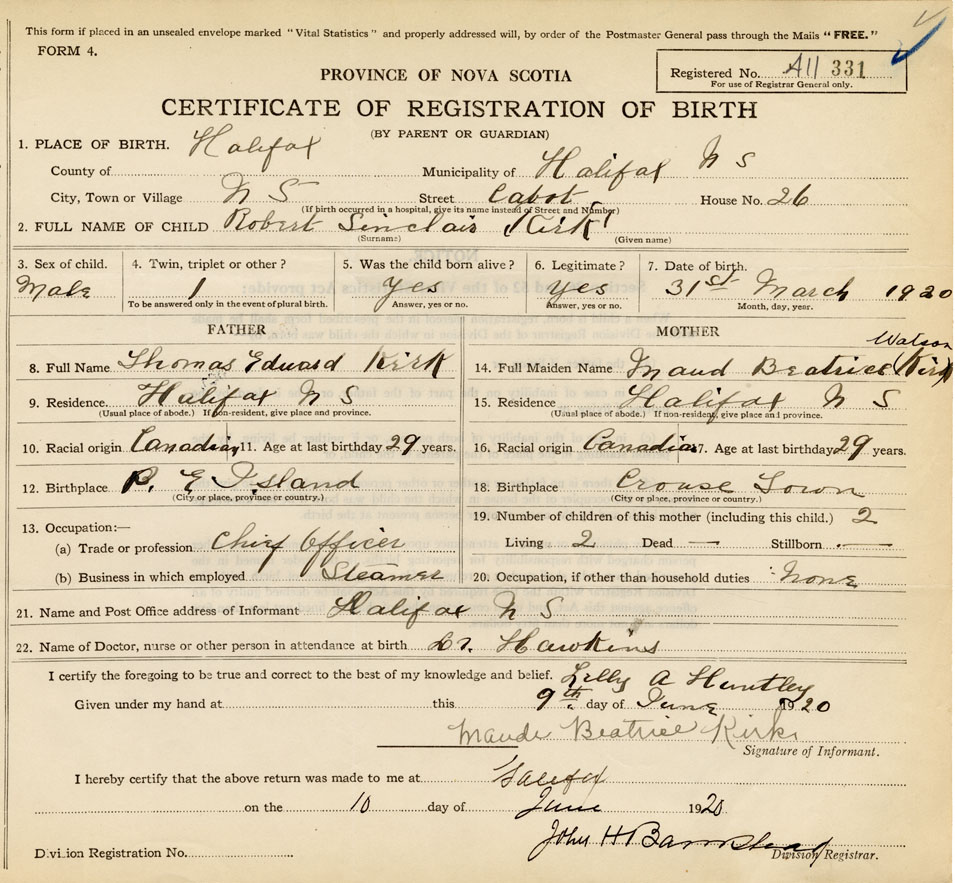 This form if placed in an unsealed envelope marked "Vital Statistics" and properly addressed will, by order of the Postmaster General pass through the Mails "FREE."
FORM 4.
Registered No. A11 331
For use of Registrar General only.
PROVINCE OF NOVA SCOTIA
CERTIFICATE OF REGISTRATION OF BIRTH
(BY PARENT OR GUARDIAN)
1. PLACE OF BIRTH. Halifax
County of Municipality of Halifax N S
City, Town or Village N S Street Cabot House No. 26
(If birth occurred in a hospital, give its name instead of Street and Number)
2. FULL NAME OF CHILD Robert Sinclair Kirk
(Surname) (Given name)
3. Sex of child. 4. Twin, triplet or other? 5. Was the child born alive? 6. Legitimate? 7. Date of birth.
Male 1 Yes yes 31st March 1920
To be answered only in the event of plural birth. Answer, yes or no. Answer, yes or no. Month, day, year.
FATHER MOTHER
Watson
8. Full Name Thomas Eduard Kirk 14. Full Maiden Name Maud Beatrice (Kirk)
9. Residence. Halifax N S 15. Residence Halifax N S
(Usual place of abode.) If non-resident, give place and province. (Usual place of abode.) If non-resident, give place and province.
10. Racial origin Canadian 11. Age at last birthday 29 years. 16. Racial origin Canadian 17. Age at last birthday 29 years.
12. Birthplace P. E Island 18. Birthplace Crouse Town
(City or place, province or country.) (City or place, province or country.)
19. Number of children of this mother (including this child.) 2
13. Occupation:—
(a) Trade or profession Chief Officer Living 2 Dead — Stillborn —
(b) Business in which employed Steamer 20. Occupation, if other than household duties None
21. Name and Post Office address of Informant Halifax N S
22. Name of Doctor, nurse or other person in attendance at birth Dr. Hawkins
I certify the foregoing to be true and correct to the best of my knowledge and belief. Lelly A Huntley
Given under my hand at this 9th day of June 1920
Maude Beatrice Kirk
Signature of Informant.
I hereby certify that the above return was made to me at Halifax
on the 10 day of June 1920
John H Barnstead
Division Registrar No. Division Registrar.